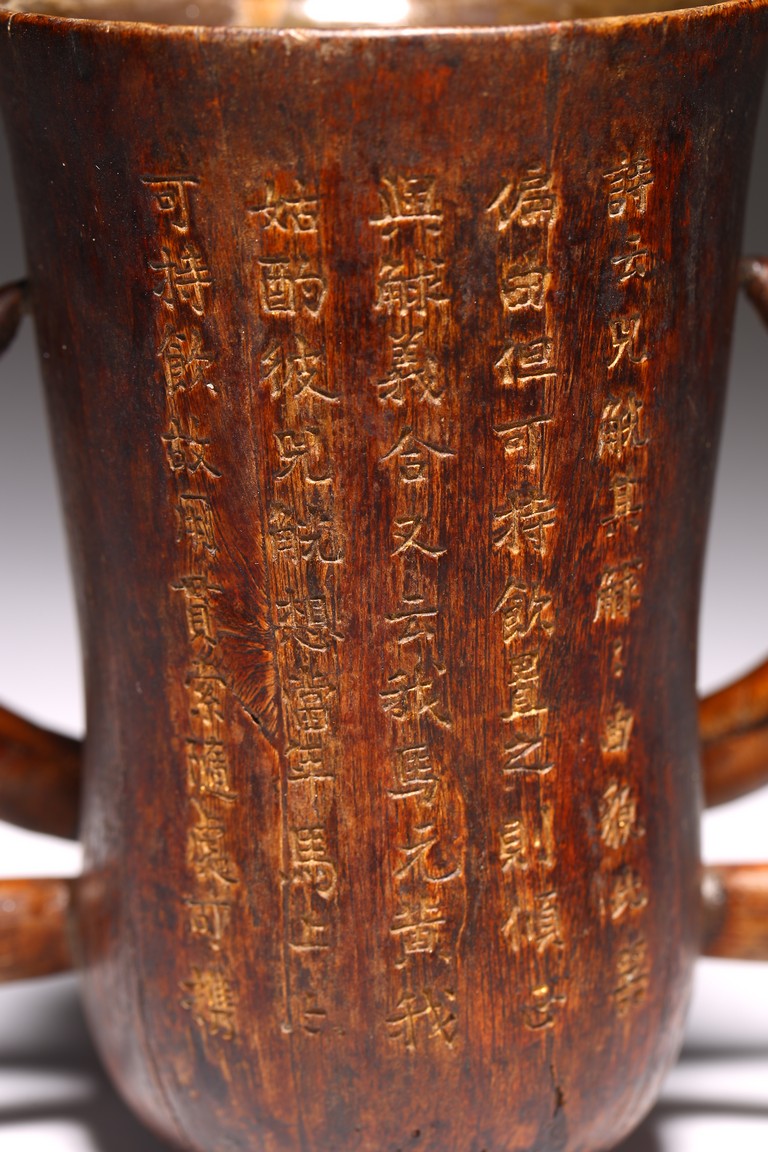 詩云兕觥其觩〻曲貌此器
偏曲但可持飲置之則傾正
與觩義合又云我馬元黃我
姑酌彼兕觥想當年馬上
可持飲故用貫索隨處可攜